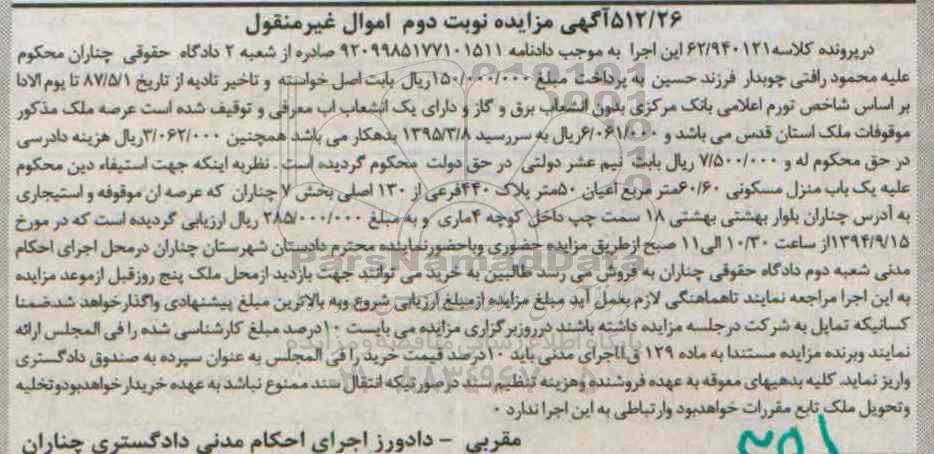 ۵۱۲/۲۶آگهی مزایده نوبت دوم اموال غیرمنقول
درپرونده کلاسه۶۲/۹۴۰۱۲۱این اجرا به موجب دادنامه ۹۲۰۹۹۸۵۱۷۷۱۰۱۵۱۱ صادره از شعبه ۲ دادگاه حقوقی چناران محکوم
علیه محمود رافتی چوبدار فرزند حسین به پرداخت مبلغ ۱۵۰/۰۰۰/۰۰۰ریال بابت اصل خواسته و تاخیر تادیه از تاریخ ۸۷/۵/۱ تا یوم الادا
بر اساس شاخص تورم اعلامی بانک مرکزی بدون انشعاب برق و گاز و دارای یک انشعاب اب معرفی و توقیف شده است عرصه ملک مذکور
موقوفات ملک استان قدس می باشد و ۶/۰۶۱/۰۰۰ریال به سررسید ۱۳۹۵/۳/۸ بدهکار می باشد همچنین ۳/۰۶۲/۰۰۰ریال هزینه دادرسی
در حق محکوم له و ۷/۵۰۰/۰۰۰ ریال بابت نیم عشر دولتی در حق دولت محکوم گردیده است . نظربه اینکه جهت استیفاء دین محکوم
علیه یک باب منزل مسکونی ۶۰/۶۰متر مربع اعیان ۵۰متر پلاک ۴۴۰فرعی از ۱۳۰ اصلی بخش ۷ چناران که عرصه ان موقوفه و استیجاری
به آدرس چناران بلوار بهشتی بهشتی ۱۸ سمت چپ داخل کوچه ۴ماری و به مبلغ ۲۸۵/۰۰۰/۰۰۰ ریال ارزیابی گردیده است که در مورخ
۱۳۹۴/۹/۱۵از ساعت ۱۰/۳۰ الی۱۱ صبح ازطریق مزایده حضوری وباحضورنماینده محترم دادستان شهرستان چناران درمحل اجرای احکام
مدنی شعبه دوم دادگاه حقوقی چناران به فروش می رسد طالبین به خرید می توانند جهت بازدید ازمحل ملک پنج روزقبل ازموعد مزایده
به این اجرا مراجعه نمایند تاهماهنگی لازم بعمل آید مبلغ مزایده ازمبلغ ارزیابی شروع وبه بالاترین مبلغ پیشنهادی واگذارخواهد شد.ضمنا
کسانیکه تمایل به شرکت درجلسه مزایده داشته باشند درروزبرگزاری مزایده می بایست ۱۰درصد مبلغ کارشناسی شده را فی المجلس ارائه
نمایند وبرنده مزایده مستندا به ماده ۱۲۹ ق.ا.اجرای مدنی باید ۱۰درصد قیمت خرید را فی المجلس به عنوان سپرده به صندوق دادگستری
واریز نماید. کلیه بدهیهای معوقه به عهده فروشنده وهزینه تنظیم سند درصورتیکه انتقال سند ممنوع نباشد به عهده خریدارخواهدبودوتخلیه
وتحویل ملک تابع مقررات خواهدبود وارتباطی به این اجرا ندارد .
مقربی - دادورز اجرای احکام مدنی دادگستری چناران
ParsNamadData
پایگاه اطلاع رسانی مناقصه و مزایده